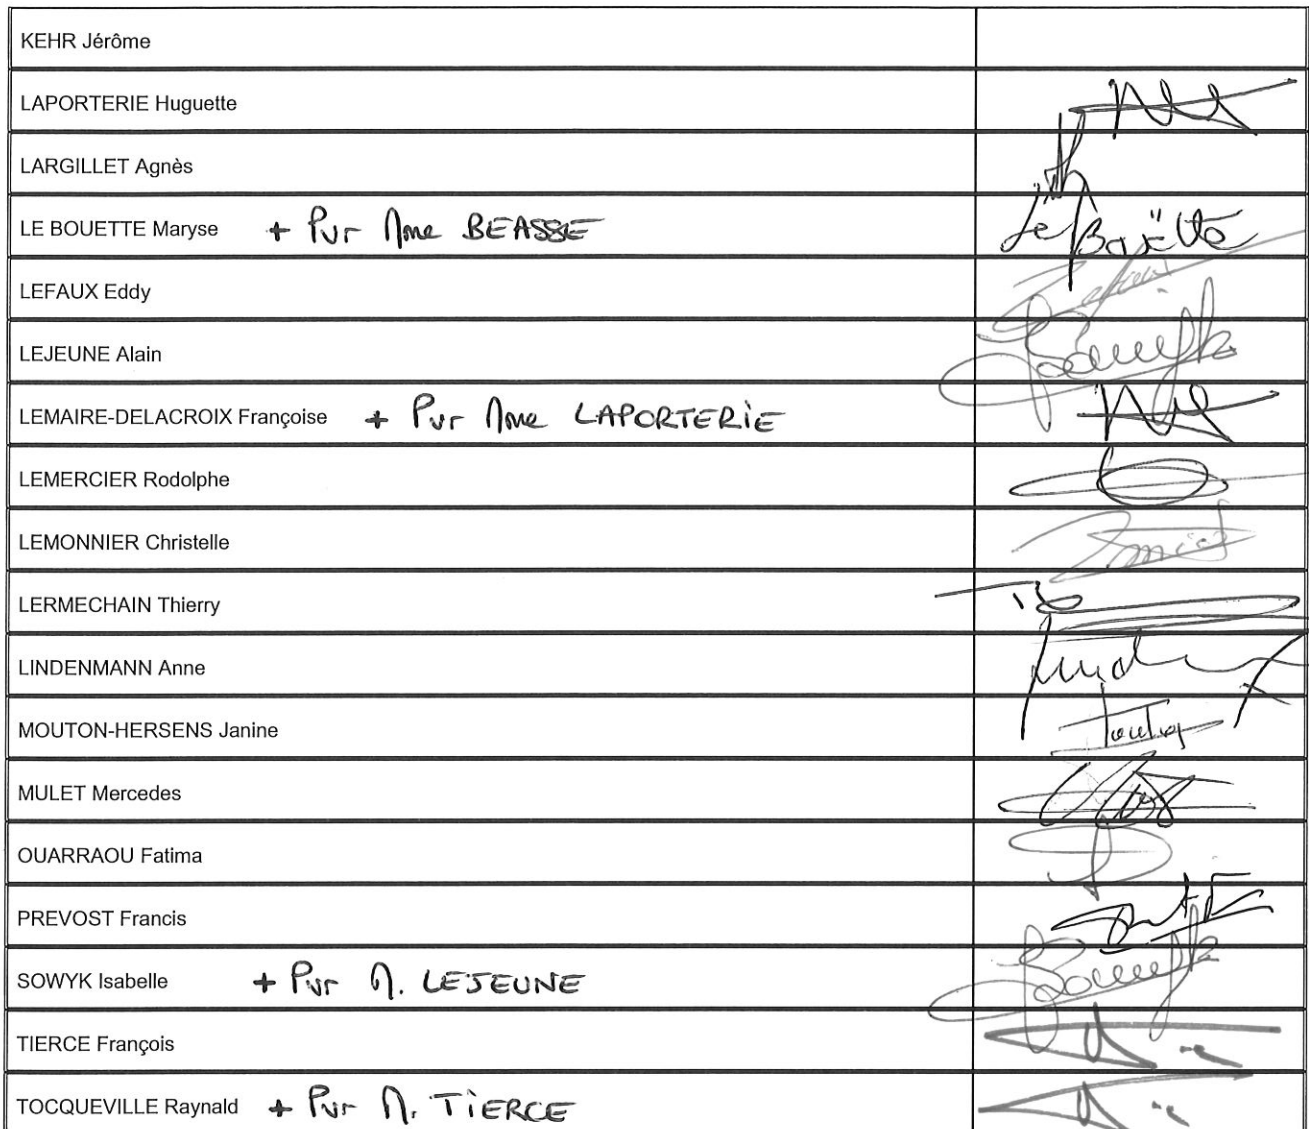 KEHR Jérôme
LAPORTERIE Huguette
LARGILLET Agnès
LE BOUETTE Maryse + Pvr Mme BEASSE Le Bouëtté
LEFAUX Eddy
LEJEUNE Alain
LEMAIRE-DELACROIX Françoise + Pvr Mme LAPORTERiE
LEMERCIER Rodolphe
LEMONNIER Christelle
LERMECHAIN Thierry
LINDENMANN Anne
MOUTON-HERSENS Janine
MULET Mercedes
OUARRAOU Fatima
PREVOST Francis
SOWYK Isabelle + Pvr M. LEJEUNE
TIERCE François
TOCQUEVILLE Raynald + Pvr M. TiERCE